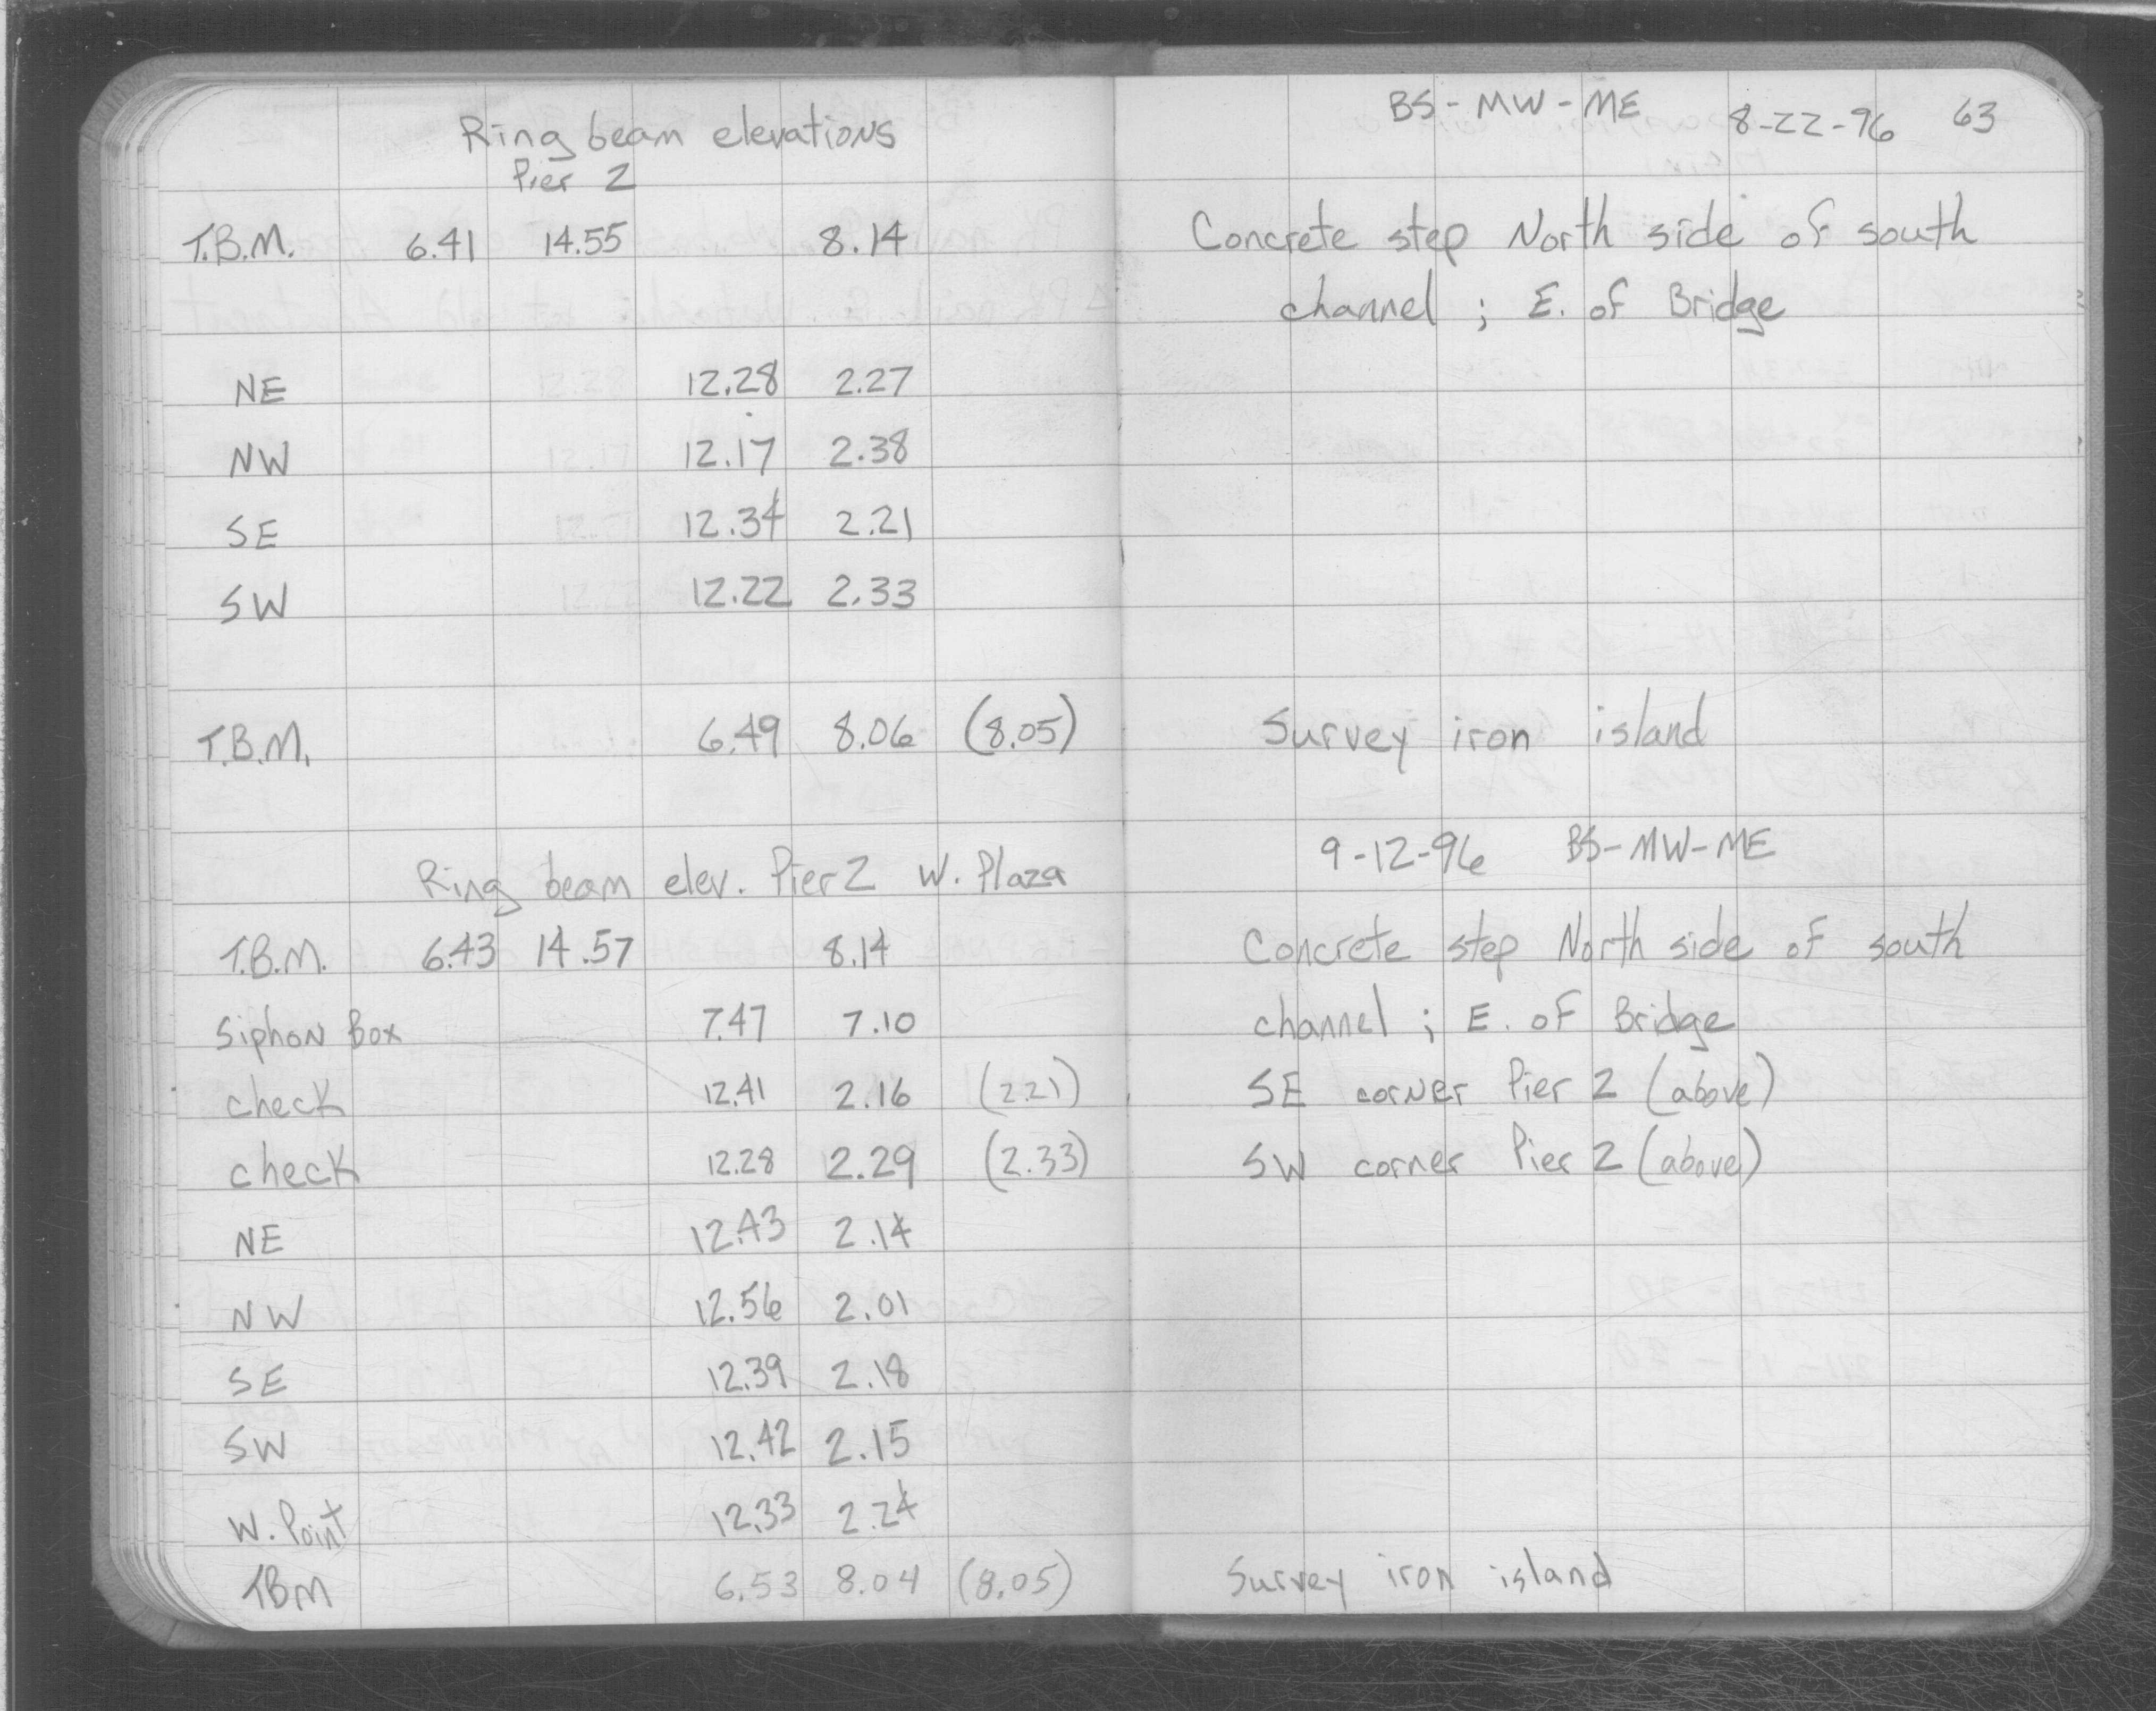 Ring beam elevations BS - MW - ME 8-22-96 63
Pier 2
T.B.M. 6.41 14.55 8.14 Concrete step North side of south
channel ; E. of Bridge
NE 12.28 2.27
NW 12.17 2.38
SE 12.34 2.21
SW 12.22 2.33
T.B.M. 6.49 8.06 (8.05) Survey iron island
Ring beam elev. Pier 2 W. Plaza 9-12-96 BS-MW-ME
T.B.M. 6.43 14.57 8.14 Concrete step North side of south
Siphon Box 7.47 7.10 channel ; E. of Bridge
check 12.41 2.16 (2.21) SE corner Pier 2 (above)
check 12.28 2.29 (2.33) SW corner Pier 2 (above)
NE 12.43 2.14
NW 12.56 2.01
SE 12.39 2.18
SW 12.42 2.15
W. Point 12.33 2.24
TBM 6.53 8.04 (8.05) Survey iron island